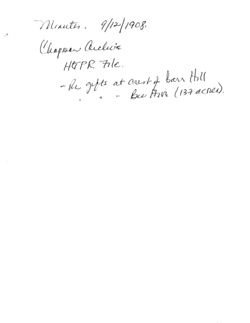 Minutes. 9/12/1908.
Chapman Archive
H&PR File.
- Re gifts at crest of Barr Hill
" " - Bee Hives (137 acres).